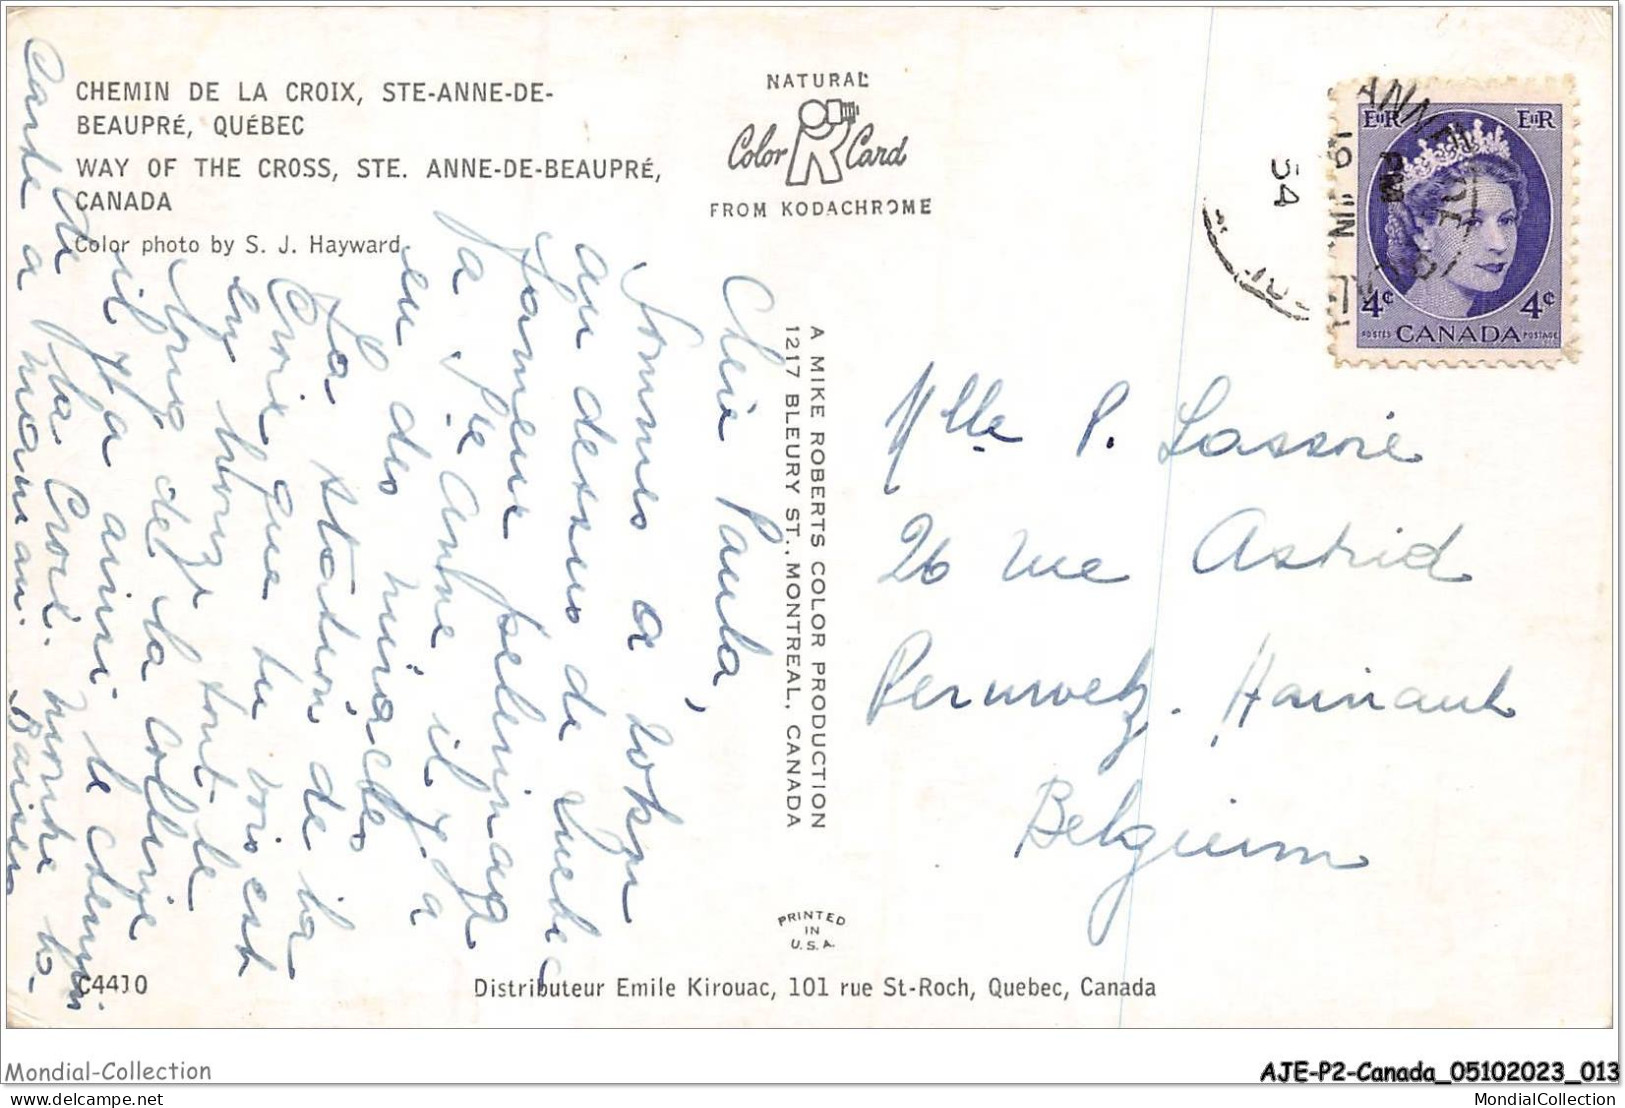 CHEMIN DE LA CROIX, STE-ANNE-DE-
BEAUPRÉ, QUÉBEC
WAY OF THE CROSS, STE. ANNE-DE-BEAUPRÉ,
CANADA
Color photo by S. J. Hayward
NATURAL
Color Card
FROM KODACHROME
EIIR EIIR
4¢ 4¢
POSTES CANADA POSTAGE
PM
19 JUN
54
Chère Paula,
Sommes a 20 km
au dessus de Quebec
fameux pelerinage
a Ste Anne il y a
eu des miracles
La station de la
Croix que tu vois est
en bronze tout le
long de la colline
il y a ainsi le chemin
de la Croix. montre la
carte a maman. Baisers
A MIKE ROBERTS COLOR PRODUCTION
1217 BLEURY ST., MONTREAL, CANADA
Mlle P. Lassoie
26 rue Astrid
Peruwelz. Hainaut
Belgium
PRINTED
IN
U.S.A.
C4410
Distributeur Emile Kirouac, 101 rue St-Roch, Quebec, Canada
Mondial-Collection
AJE-P2-Canada_05102023_013
www.mondialcollection.com
MondialCollection